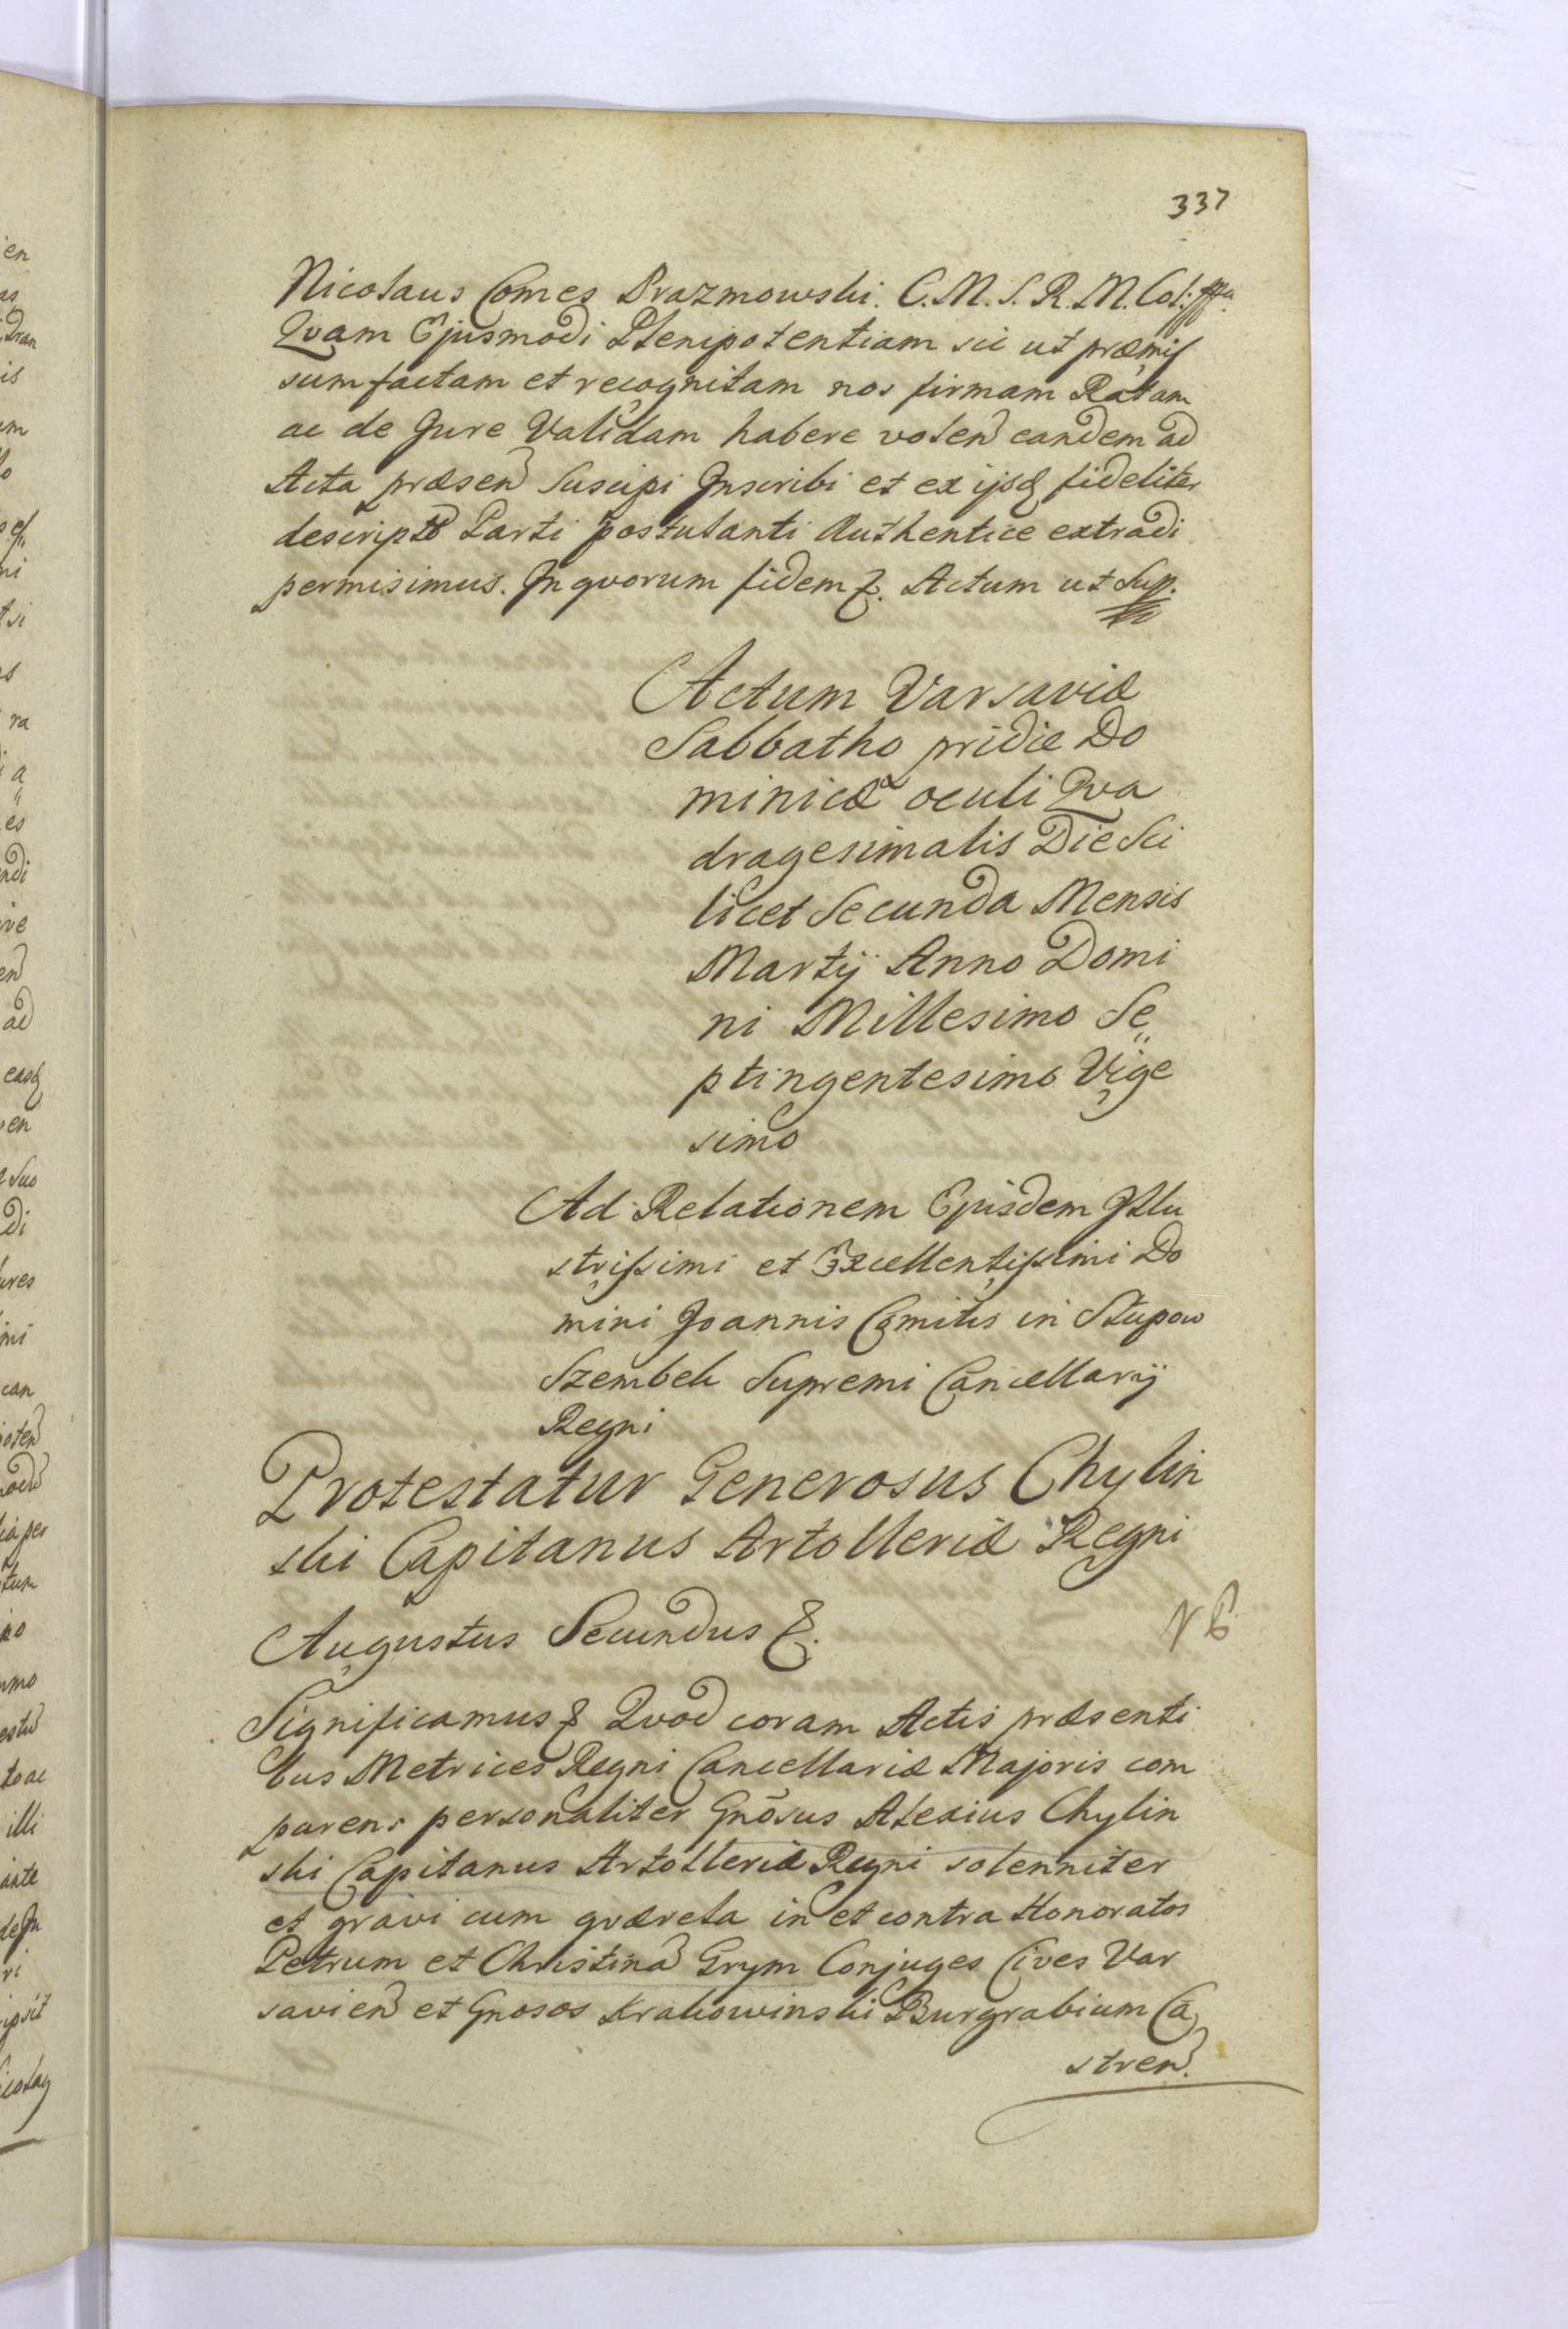 337
Nicolaus Comes Prazmowski. C. M. S. R. M. Col:
Qvam Ejusmodi Plenipotentiam sic ut præmis
sum factam et recognitam nos firmam Ratam
ac de Jure Validam habere volen eandem ad
Acta præsen Suscipi Inscribi et ex ijsq fideliter
descript Parti postulanti Authentice extradi
permisimus. In qvorum fidem &. Actum ut Sup.
Actum Varsaviæ
Sabbatho pridie Do
minicæ oculi Qva
dragesimalis Die Sci
licet Secunda Mensis
Martij Anno Domi
ni Millesimo Se
ptingentesimo Vige
simo
Ad Relationem Ejusdem Illu
strissimi et Excellentissimi Do
mini Joannis Comitis in Słupow
Szembek Supremi Cancellarij
Regni
Protestatur Generosus Chylin
ski Capitanus Artolleriæ Regni
Augustus Secundus &.
NB
Significamus & Qvod coram Actis præsenti
bus Metrices Regni Cancellariæ Majoris com
parens personaliter Gnōsus Alexius Chylin
ski Capitanus Artolleriæ Regni solenniter
et gravi cum qværela in et contra Honoratos
Petrum et Christina Grym Conjuges Cives Var
savien et Gnosos Krakowinski Burgrabium Ca
stren.